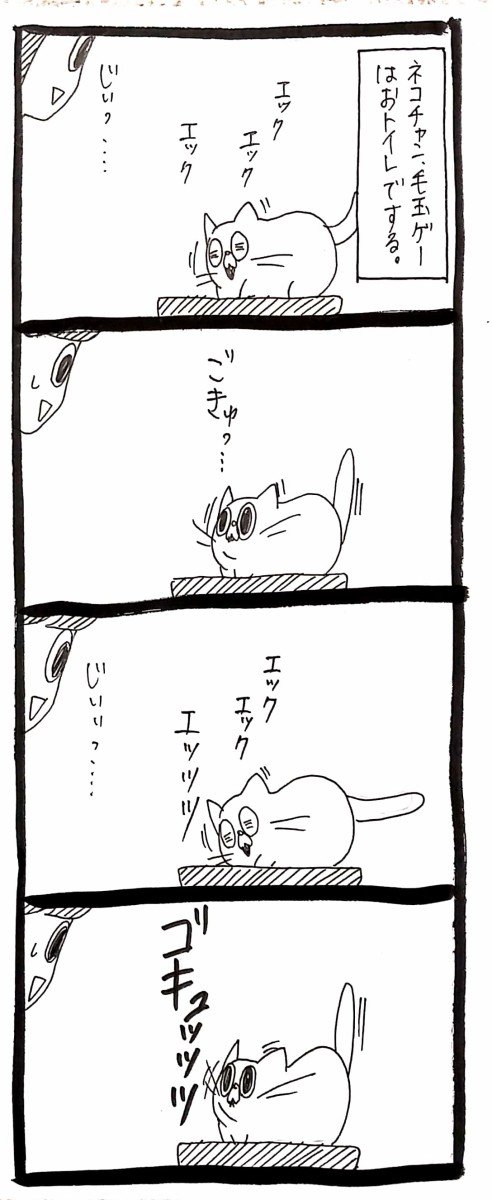 ネコチャン、毛玉ゲー
はおトイレでする。
エック
エック
エック
じぃっ……
ごきゅっ…
エック
エック
エッッッ
じぃぃっ……
ゴキュッッッ